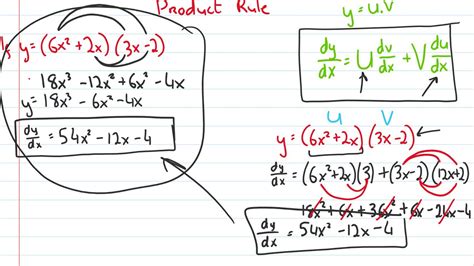 Product Rule
y=(6x²+2x)(3x-2)
18x³ -12x² +6x² -4x
y= 18x³ -6x² -4x
dy/dx = 54x² -12x -4
y= u.v
dy/dx = U dv/dx + V du/dx
U V
y= (6x²+2x)(3x-2)
dy/dx = (6x²+2x)(3) + (3x-2)(12x+2)
18x² +6x +36x² +6x -24x -4
dy/dx = 54x² -12x -4